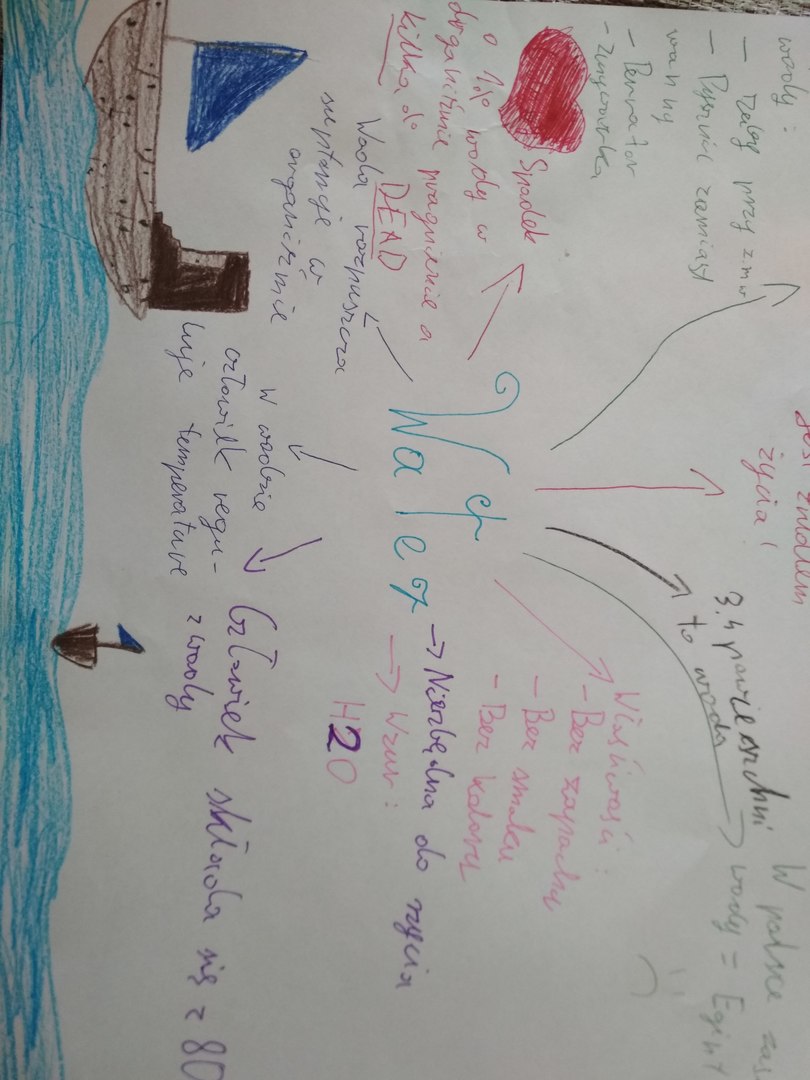 wody:
- Prysznic zamiast
wanny
- Perlator
- Zmywarka
jest źródłem
życia!
3.4 powierzchni
to woda
W polsce
wody = Egipt
Spadek
o 1% wody w
organizmie pragnienie a
kilka do DEAD
Water
Właściwości:
- Bez zapachu
- Bez smaku
- Bez koloru
→ Niezbędna do życia
→ Wzór:
H2O
Woda rozpuszcza
organizmie
W wodzie
człowiek regu-
luje temperature
Człowiek składa się = 80
z wody